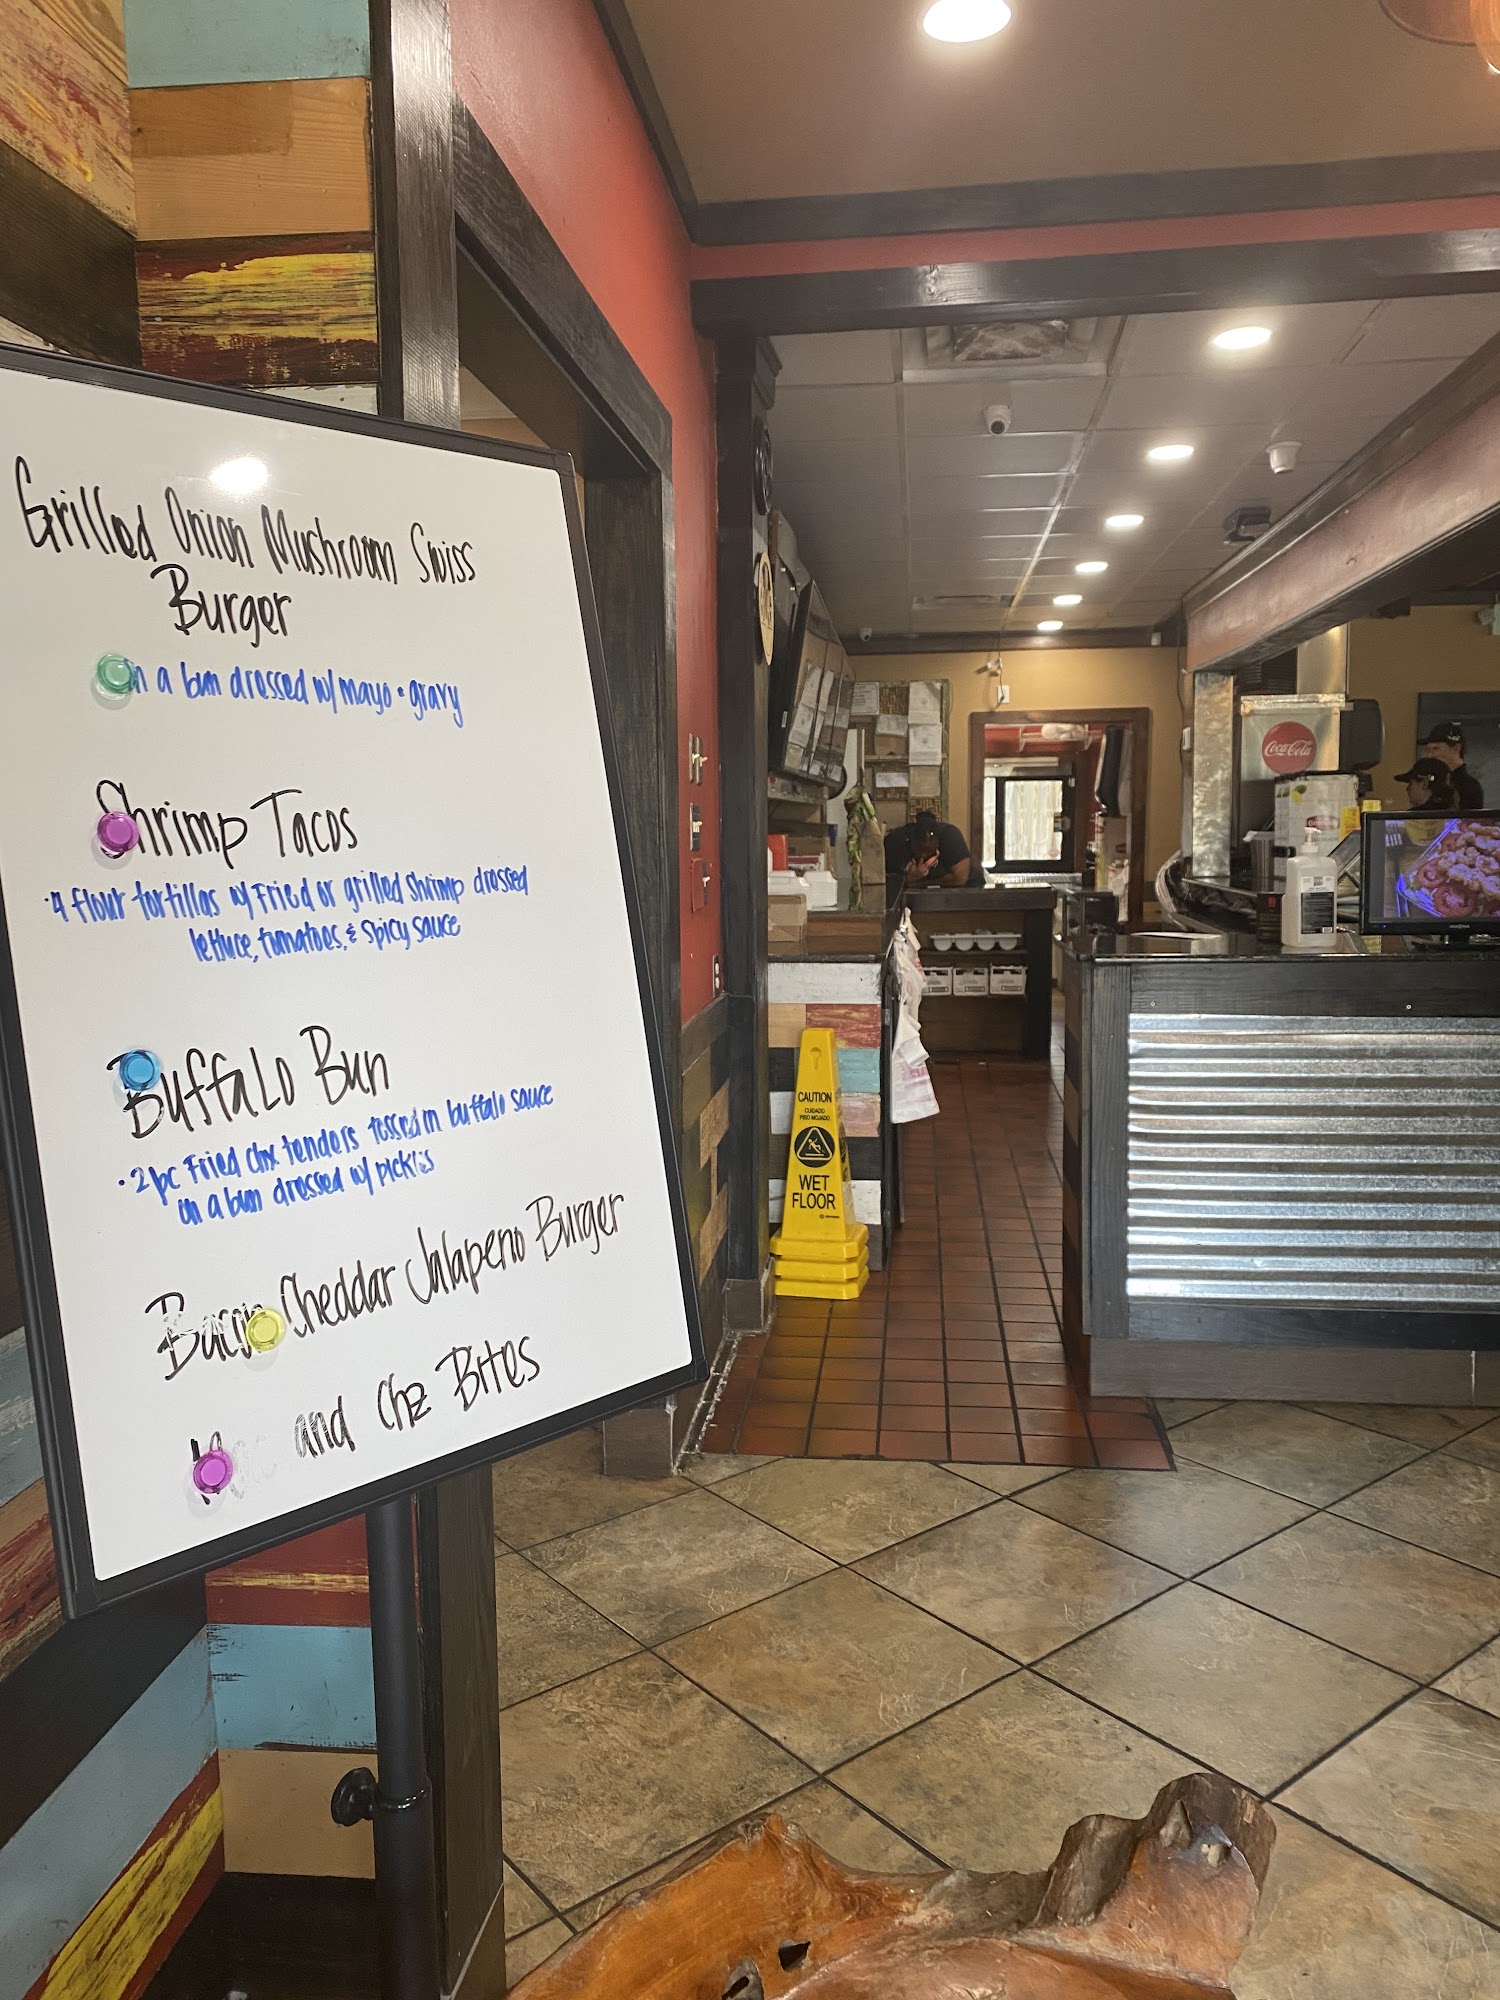 Grilled Onion Mushroom Swiss
Burger
in a bun dressed w/ mayo & gravy
Shrimp Tacos
· 4 flour tortillas w/ Fried or grilled shrimp dressed
lettuce, tomatoes, & spicy sauce
Buffalo Bun
· 2 pc Fried chx tenders tossed in buffalo sauce
in a bun dressed w/ pickles
Bacon Cheddar Jalapeno Burger
and Chz Bites
CAUTION
CUIDADO
PISO MOJADO
WET
FLOOR
Coca-Cola